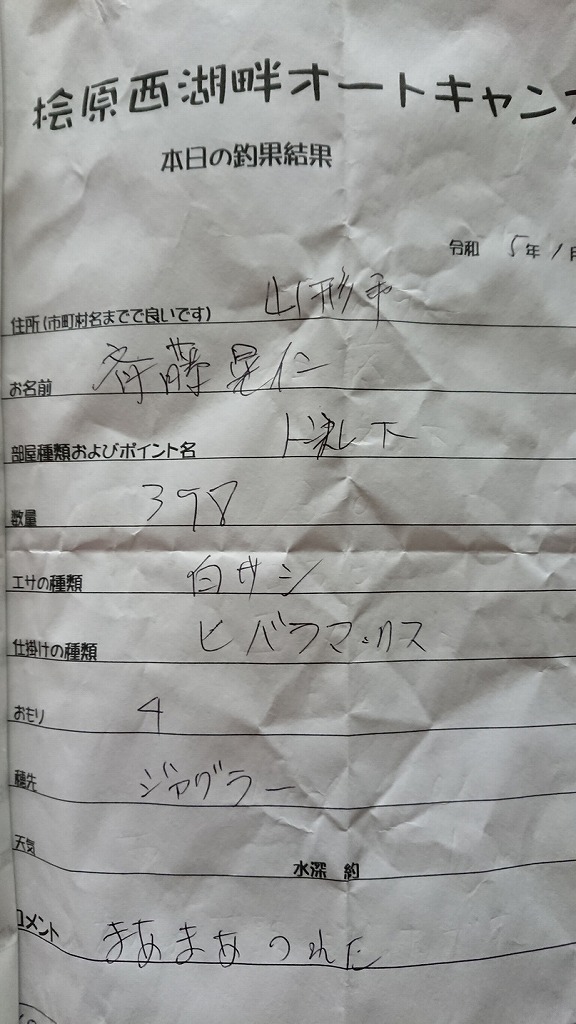 桧原西湖畔オートキャン
本日の釣果結果
令和 5年 1月
住所(市町村名までで良いです) 山形市
お名前 斉藤晃仁
部屋種類およびポイント名 下
数量 398
エサの種類 白サシ
仕掛けの種類 ヒバラマックス
おもり 4
穂先 ジャグラー
天気 水深 約
コメント まあまあつれた